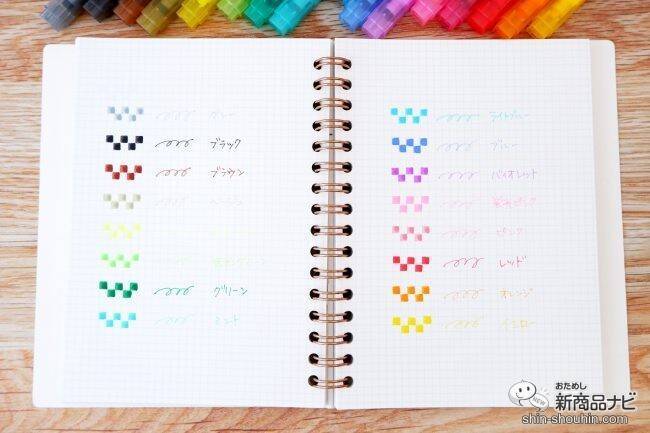 グレー
ブラック
ブラウン
グリーン
ミント
ライトブルー
ブルー
バイオレット
ピンク
レッド
オレンジ
イエロー
おためし
新商品ナビ
NEW
shin-shouhin.com